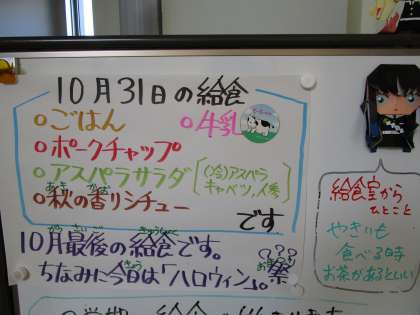 10月31日の給食
○ごはん ○牛乳
○ポークチャップ
○アスパラサラダ
(冷)アスパラ
キャベツ、人参
○秋の香りシチュー
あき かお
です
10月最後の給食です。
さいご きゅうしょく
ちなみに今日は「ハロウィン」。
きょう
祭
給食室から
ひとこと
やきいも
食べる時
お茶があるといい